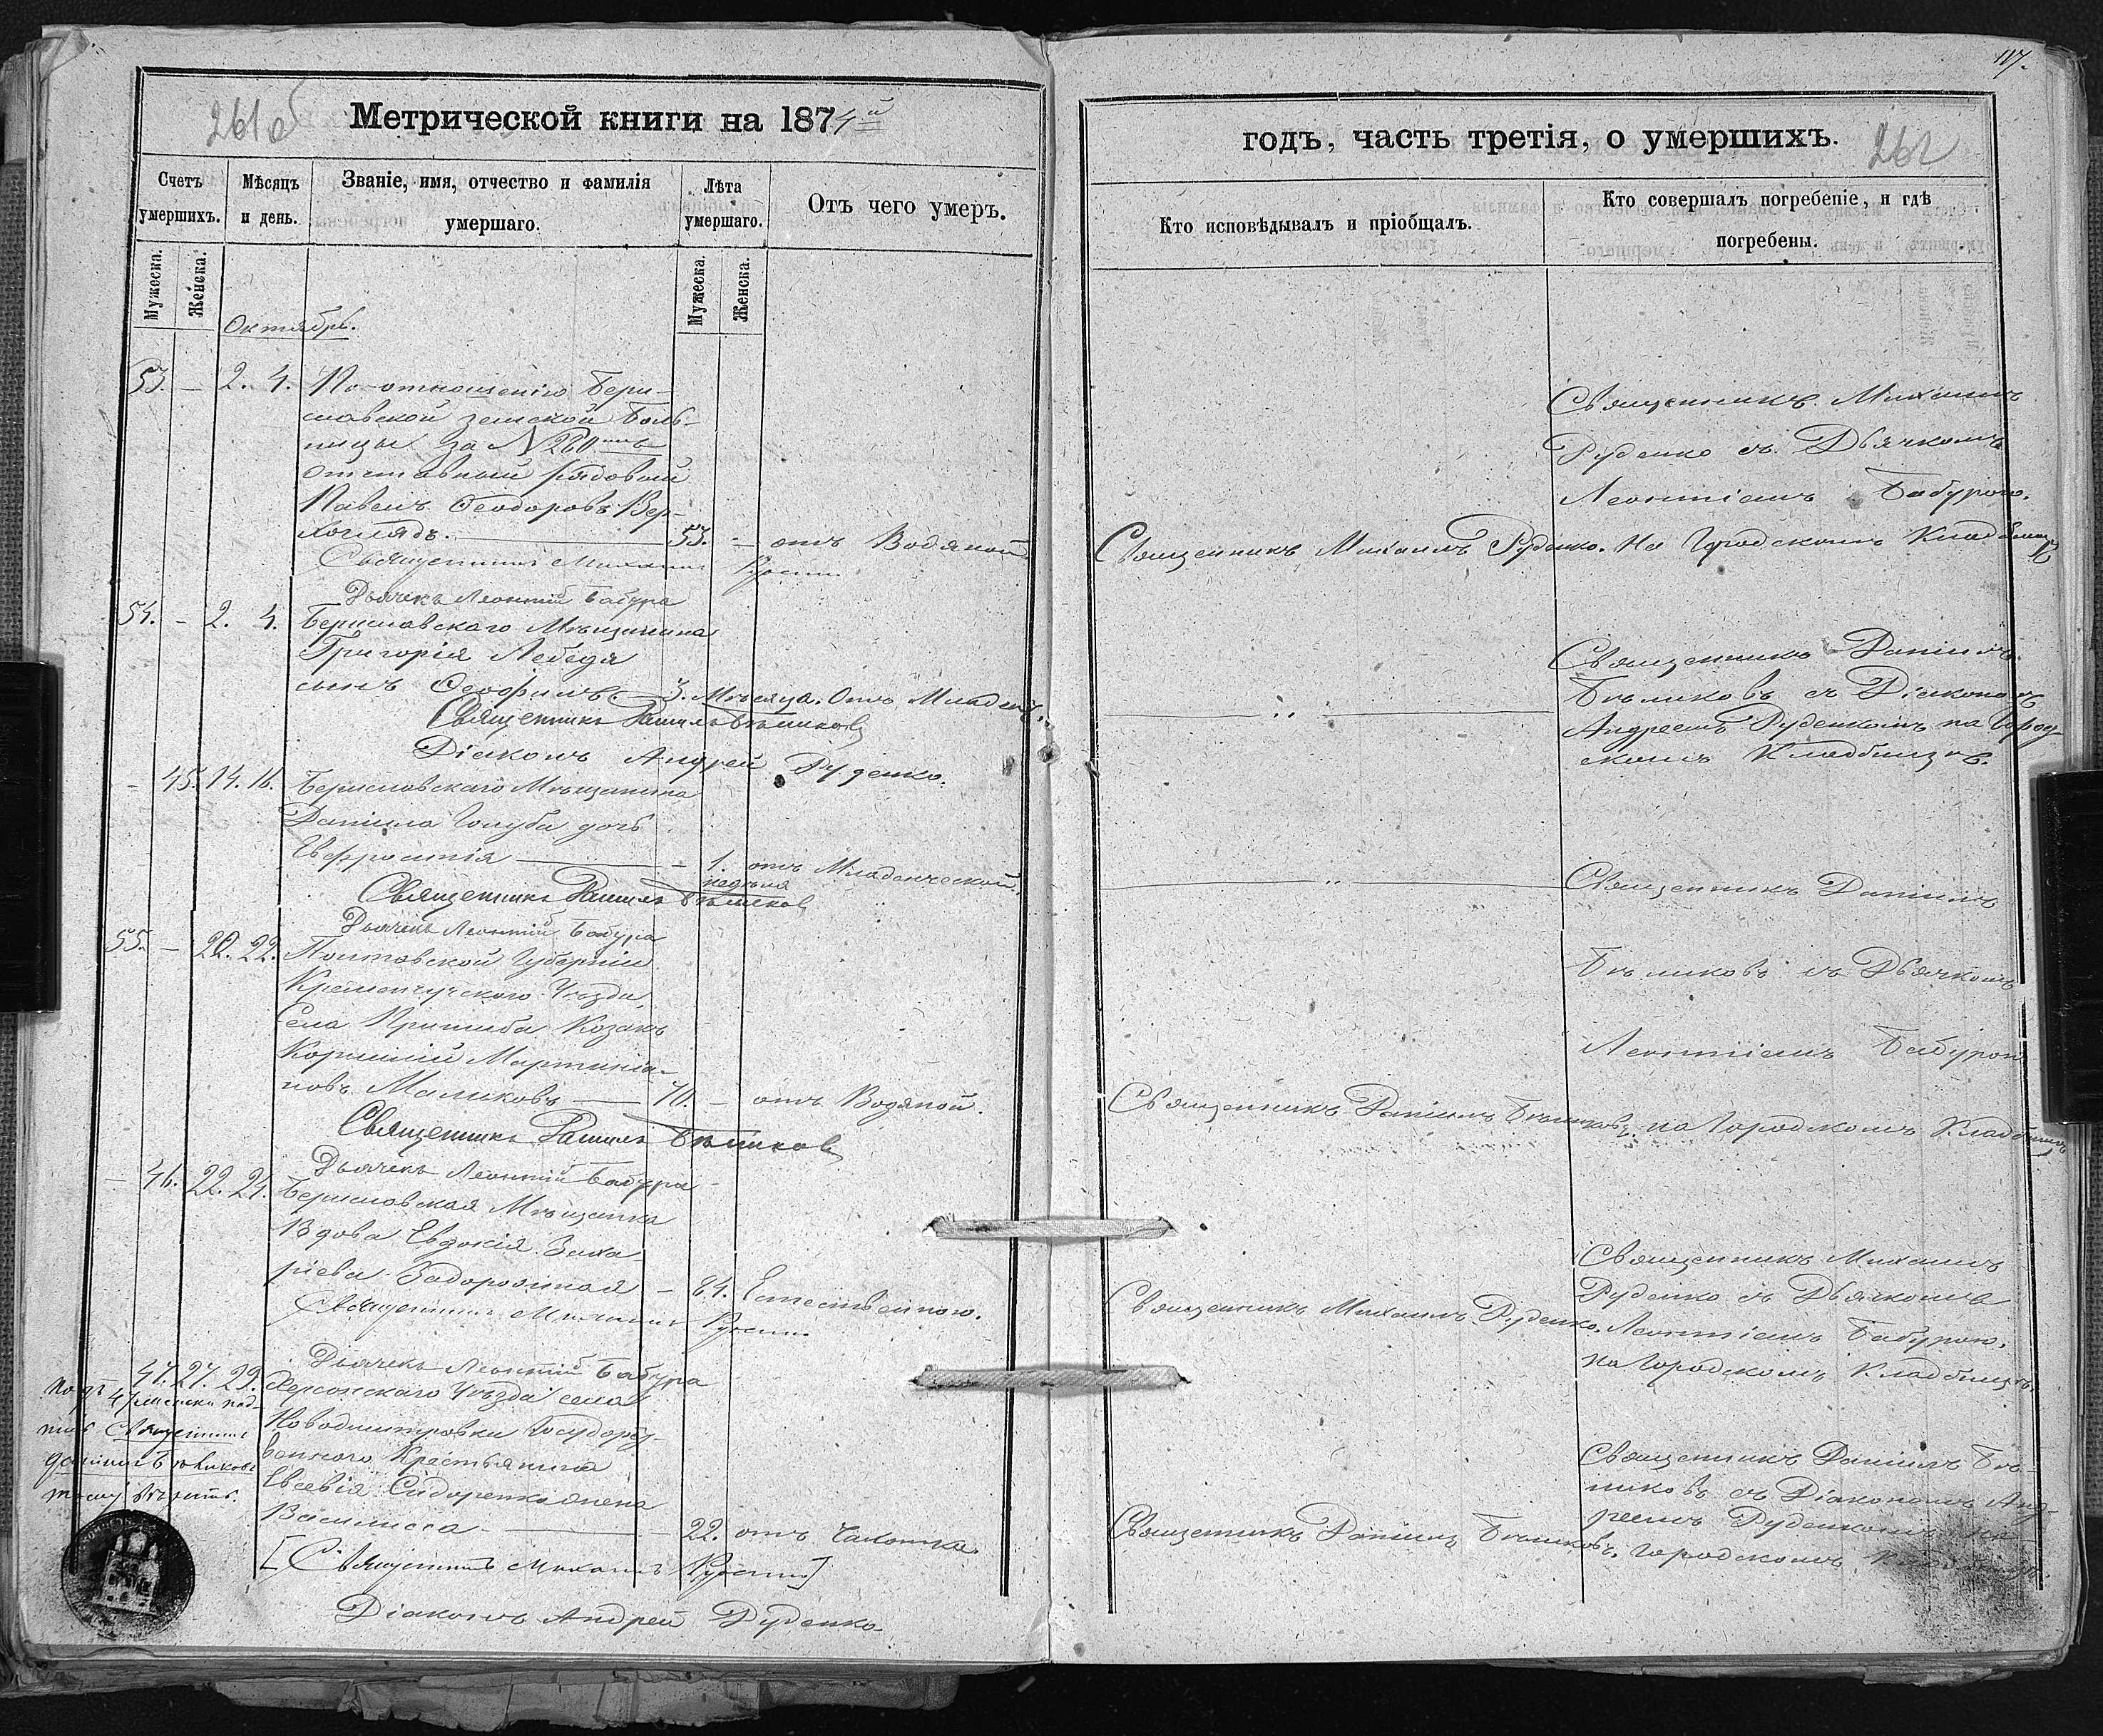 261об
Метрической книги на 1874й
Счетъ умершихъ.
Мѣсяцъ и день.
Званіе, имя, отчество и фамилія умершаго.
Лѣта умершаго.
Отъ чего умеръ.
Мужеска.
Женска.
Мужеска.
Женска.
Октябрь.
53. — 2. 4. По отношенію Бери-
славской земской Боль-
ницы за № 260
отставный рядовый
Павелъ Ѳеодоровъ Вер-
хоглядъ. — 53. — отъ Водяной
Священникъ Михаилъ Руденко
Дьячекъ Леонтій Бабура
54. — 2. 4. Бериславскаго Мѣщанина
Григорія Лебедя
сынъ Ѳеофилъ. — 3. Мѣсяца. Отъ Младенч.
Священникъ Даніилъ Бѣликовъ
Діаконъ Андрей Дуденко.
— 45. 14. 16. Бериславскаго Мѣщанина
Даніила Голуба дочь
Евфросинія — 1. отъ Младенческой.
недѣля
Священникъ Даніилъ Бѣликовъ
Дьячекъ Леонтій Бабура
55. — 20. 22. Полтавской Губерніи
Кременчугскаго Уѣзда,
Села Козакъ
Корнилій Мартиніа-
новъ Маликовъ — 70. — отъ Водяной.
Священникъ Даніилъ Бѣликовъ
Дьячекъ Леонтій Бабура
— 46. 22. 24. Бериславская Мѣщанка
Вдова Евдокія Заха
ріева Задорожная — 84. Естественною.
Священникъ Михаилъ Руденко
Дьячекъ Леонтій Бабура
47. 27. 29. Херсонскаго Уѣзда села
Новодмитровки Государс-
твеннаго Крестьянина
Евсевія Сидоренка жена
Василисса — 22. отъ Чахотки.
[Священникъ Михаилъ Руденко]
Діаконъ Андрей Дуденко.
Священникъ
Даніилъ Бѣликовъ
117.
годъ, часть третія, о умершихъ.
262
Кто исповѣдывалъ и пріобщалъ.
Кто совершалъ погребеніе, и гдѣ погребены.
Священникъ Михаилъ
Руденко съ Дьячкомъ
Леонтіемъ Бабурою.
Священникъ Михаилъ Руденко. На Городскомъ Кладбищѣ
Священникъ Даніилъ
Бѣликовъ съ Діакономъ
Андреемъ Дуденкомъ на Город-
скомъ Кладбищѣ.
Священникъ Даніилъ
Бѣликовъ съ Дьячкомъ
Леонтіемъ Бабурою
Священникъ Даніилъ Бѣликовъ. на Городскомъ Кладбищѣ
Священникъ Михаилъ
Руденко съ Дьячкомъ
Священникъ Михаилъ Руденко. Леонтіемъ Бабурою.
на Городскомъ Кладбищѣ.
Священникъ Даніилъ Бѣ-
ликовъ съ Діакономъ Анд-
реемъ Дуденкомъ на
Священникъ Даніилъ Бѣликовъ. Городскомъ Кладбищѣ.